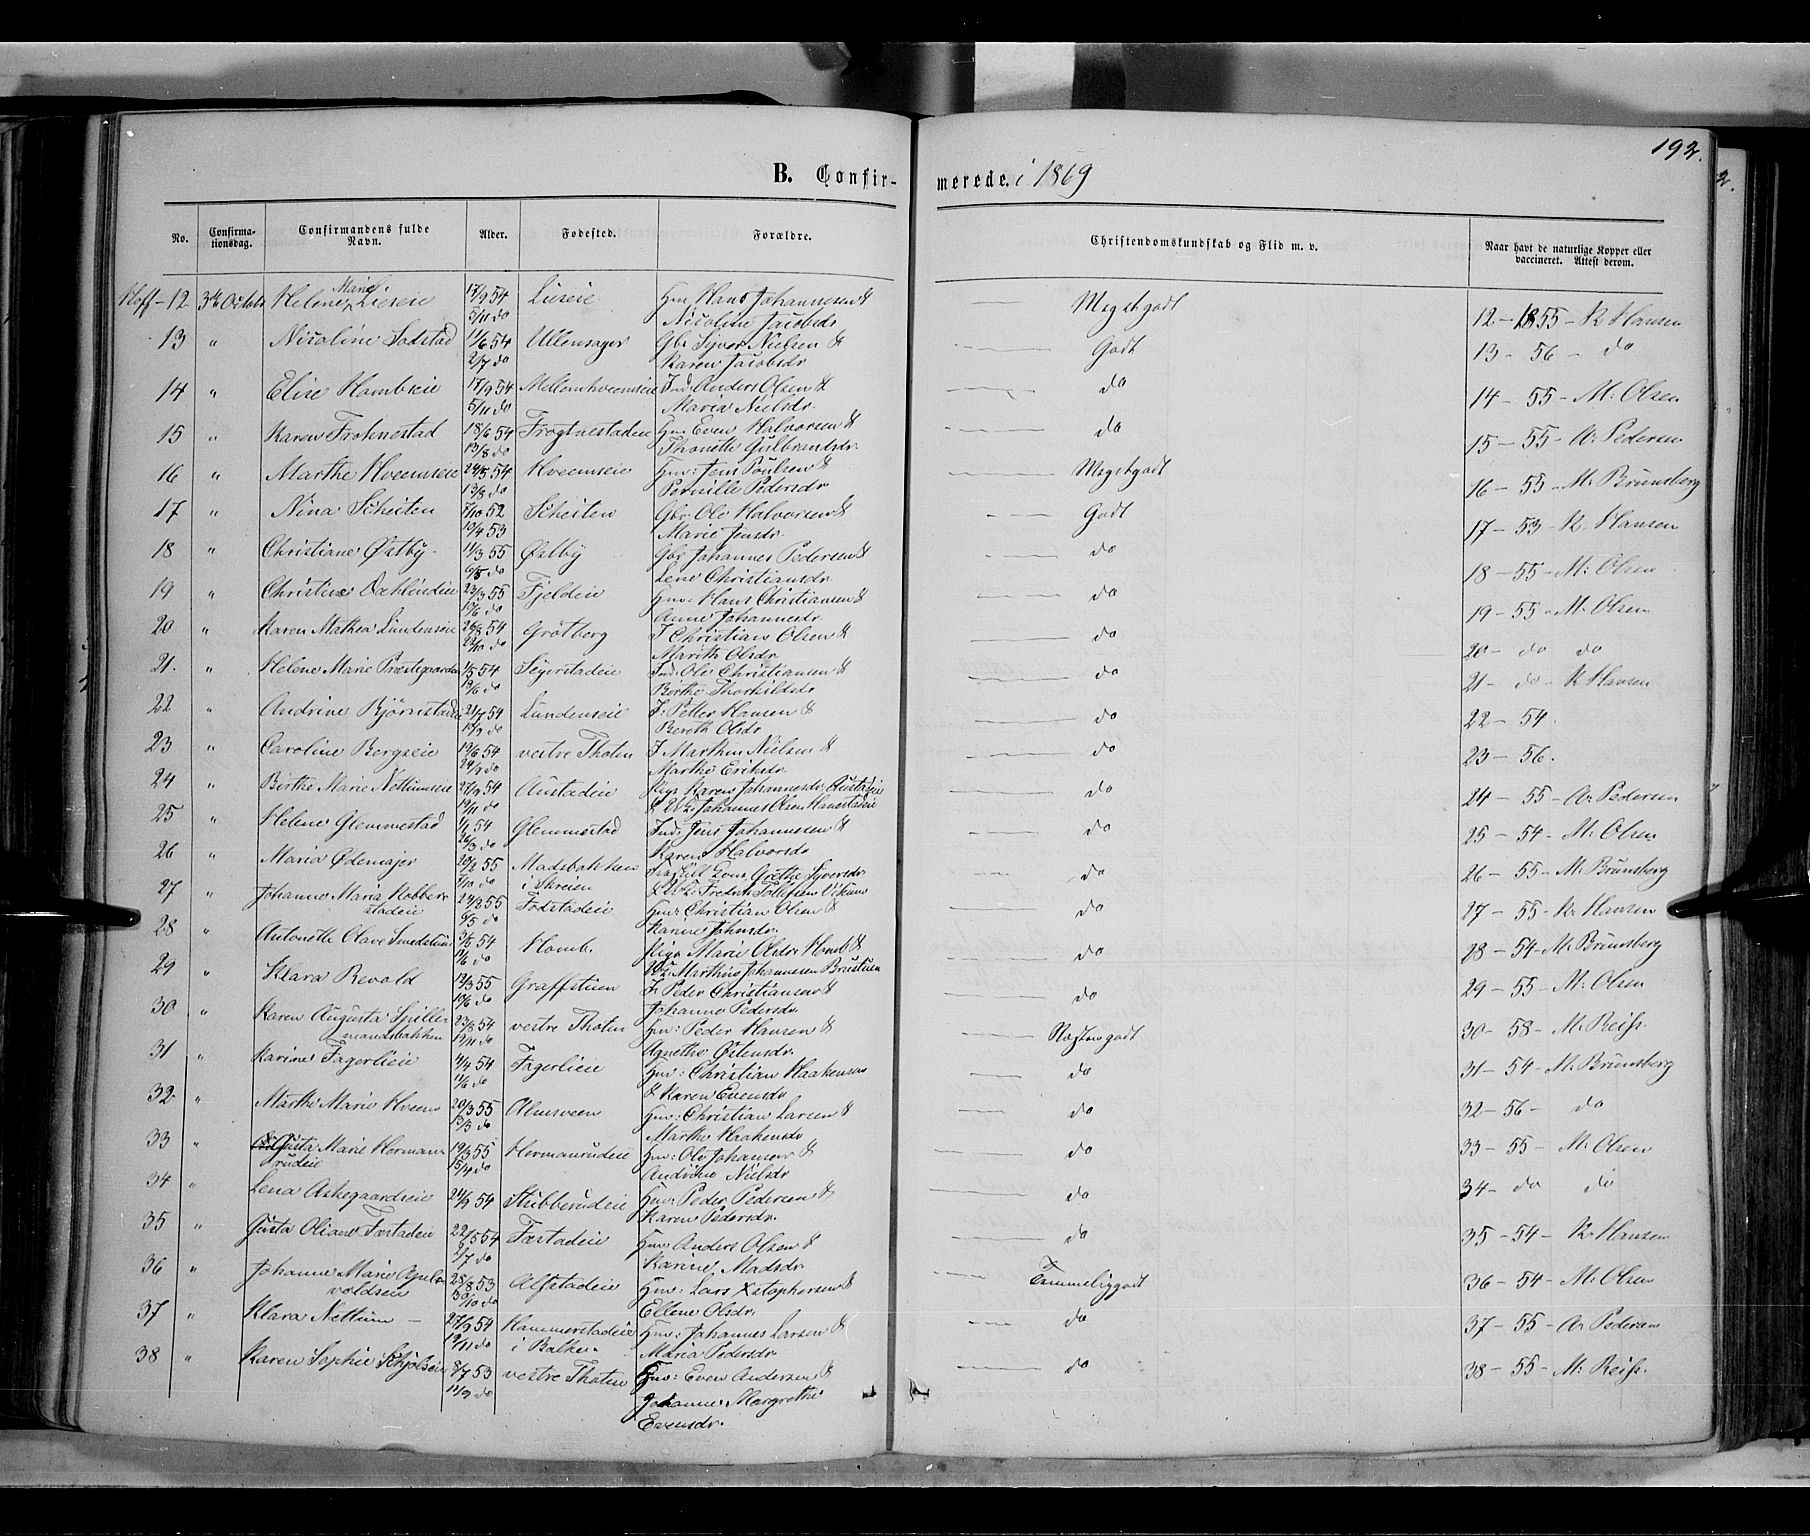 192.
B. Confir-merede. i 1869
No. Confirma-tionsdag. Confirmandens fulde Navn. Alder. Fødested. Forældre. Christendomskundskab og Flid m. v. Naar havt de naturlige Kopper eller vaccineret. Attest derom.
Hoff - 12 3die Octobr Helene Marie Lieseie 17/9 54 5/11 do Lieseie Hm Hans Johannesen & Nicoline Jacobsdr Megetgodt 12 - 1855 - K Hansen
13 " Nicoline Sodstad 11/6 54 2/7 do Ullensager Gbr Syver Nielsen & Karen Jacobsdr Godt 13 - 56 - do
14 " Elise Hombseie 17/9 54 5/11 do Mellemhveemseie Ind: Anders Olsen & Maria Nielsdr. do 14 - 55 - M: Olsen
15 " Karen Frohnestad 18/6 54 13/8 do Frogtnestadeie Hm Even Halvorsen & Thonette Gulbrandsdr. do 15 - 55 - A: Pedersen
16 " Marthe Hveemseie 24/5 54 13/8 do Hveemseie Hm: Jens Poulsen & Pernille Pedersdr Megetgodt 16 - 55 - M: Brunsberg
17 " Nina Scheiten 7/10 52 19/4 53 Scheiten Gbr Ole Halvorsen & Marie Jensdr. Godt 17 - 53 - K. Hansen
18 " Christiane Østby 11/3 55 6/5 do Østby Gbr Johannes Pedersen & Lene Christiansdr do 18 - 55 - M: Olsen
19 " Christine Dæhlineie 23/3 55 17/6 do Fjeldeie Hm: Hans Christiansen & Anne Johannesdr do 19 - 55 - M. Olsen
20 " Karen Mathea Lundenseie 26/8 54 22/10 do Grøtberg I Christian Olsen & Marith Olsdr. do 20 - do do
21. " Helene Marie Præstegaarden 1/5 54 19/6 do Segerstadeie Ind: Ole Christiansen & Birthe Thorkildsdr do 21 - do - K Hansen
22 " Andrine Bjørnstadeie 21/7 54 17/9 do Lundenseie I: Petter Hansen & Bereth Olsdr do 22 - 54.
23 " Caroline Bergseie 19/6 54 24/9 do vestre Thoten I Marthin Nielsen & Marthe Eriksdr. do 23 - 56.
24 " Birthe Marie Nettumseie 27/9 54 19/11 do Austadeie Pige Karen Johannesdr. Austadeie & Uk: Johannes Olsen Hanestadeie do 24 - 55 - A: Pedersen
25 " Helene Glemmestad 1/1 54 26/3 do Glemmestad Ind: Jens Johannesen & Karen Halvorsdr do 25 - 54 - M: Olsen
26 " Maria Ødemajer 20/2 55 7/10 do Madsbakken i Skreien Grethe Syversdr & Uk: Fredrik Tollefsen do 26 - 55 - M: Brunsberg
27 " Johanne Maria Kobberstadeie 24/2 55 6/5 do Fodstadeie Hm: Christian Olsen & Karine Johnsdr. do 27 - 55 - K. Hansen
28 " Antonette Olave Smedstuen 3/5 54 11/6 do Homb. Pige Marie Olsdr Homb & Uk: Marthins Johannesen Brustuen do 28 - 54 - M: Brunsberg
29 " Klara Revold 12/3 55 10/6 do Graffstuen I: Peder Christiansen & Johanne Pedersdr do 29 - 55 - M: Olsen
30 " Karen Augusta Spillemandsbakken 23/8 54 12/11 do vestre Thoten Hm: Peder Hansen & Agnethe Østensdr. Næstengodt 30 - 58 - M: Reiss.
31 " Karine Fagerlieie 4/4 54 11/6 do Fagerlieie Hm: Christian Haakensen & Karen Evensdr do 31 - 54 - M: Brunsberg
32 " Marthe Marie Hveem 20/3 55 13/3 do Almsveen Hm: Christian Larsen & Marthe Haakensdr do 32 - 56 - do
33 " Gusta Marie Hermanrudeie 19/3 55 15/4 do Hermanrudeie Hm: Ole Johansen & Andrine Nielsdr do 33 - 55 - M: Olsen
34 " Lena Askegaardseie 21/7 54 Stubberudeie Hm: Peder Pedersen & Karen Pedersdr. do 34 - do do
35 " Gusta Oliane Færstadeie 22/5 54 2/7 do Færstadeie Hm Anders Olsen & Karine Madsdr. do 35 - 54 - K. Hansen
36 " Johanne Marie Apelvoldseie 28/8 53 30/10 do Alfstadeie Hm: Lars Xstophersen & Ellene Olsdr. Temmeliggodt 36 - 54 - M: Olsen
37 " Klara Nettum 27/9 54 19/11 do Hammerstadeie i Balke. Hm: Johannes Larsen & Maria Pedersdr. do 37 - 55 - A: Pedersen
38 " Karen Sophie Skjølseie 8/7 53 11/9 do vestre Thoten Hm: Even Andersen & Johanne Margrethe Evensdr. do 38 - 55 - M: Reiss.